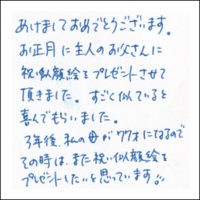 あけましておめでとうございます。
お正月に主人のお父さんに
祝い似顔絵をプレゼントさせて
頂きました。すごく似ていると
喜んでもらいました。
3年後、私の母が77才になるので
その時は、また祝い似顔絵を
プレゼントしたいと思っています!!